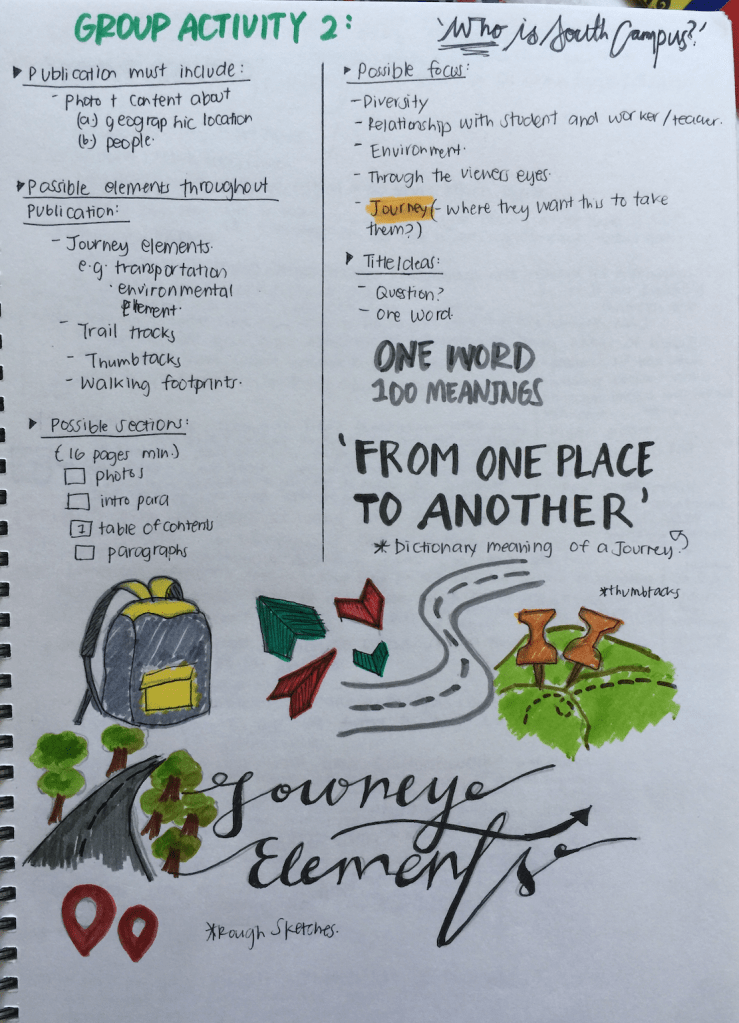 GROUP ACTIVITY 2:
'Who is South Campus?'
Publication must include:
- Photo + content about
(a) geographic location
(b) people.
Possible elements throughout
Publication:
- Journey elements.
e.g. transportation
· environmental
element.
- Trail tracks
- Thumbtacks
- Walking footprints.
Possible sections:
(16 pages min.)
photos
intro para
1 table of contents
paragraphs
Possible focus:
- Diversity
- Relationship with student and worker/teacher.
- Environment.
- Through the viewers eyes.
- Journey (- where they want this to take
them?)
Title Ideas:
- Question?
- One word.
ONE WORD
100 MEANINGS
'FROM ONE PLACE
TO ANOTHER'
* Dictionary meaning of a Journey.
*thumbtacks
Journey
Elements
*Rough Sketches.